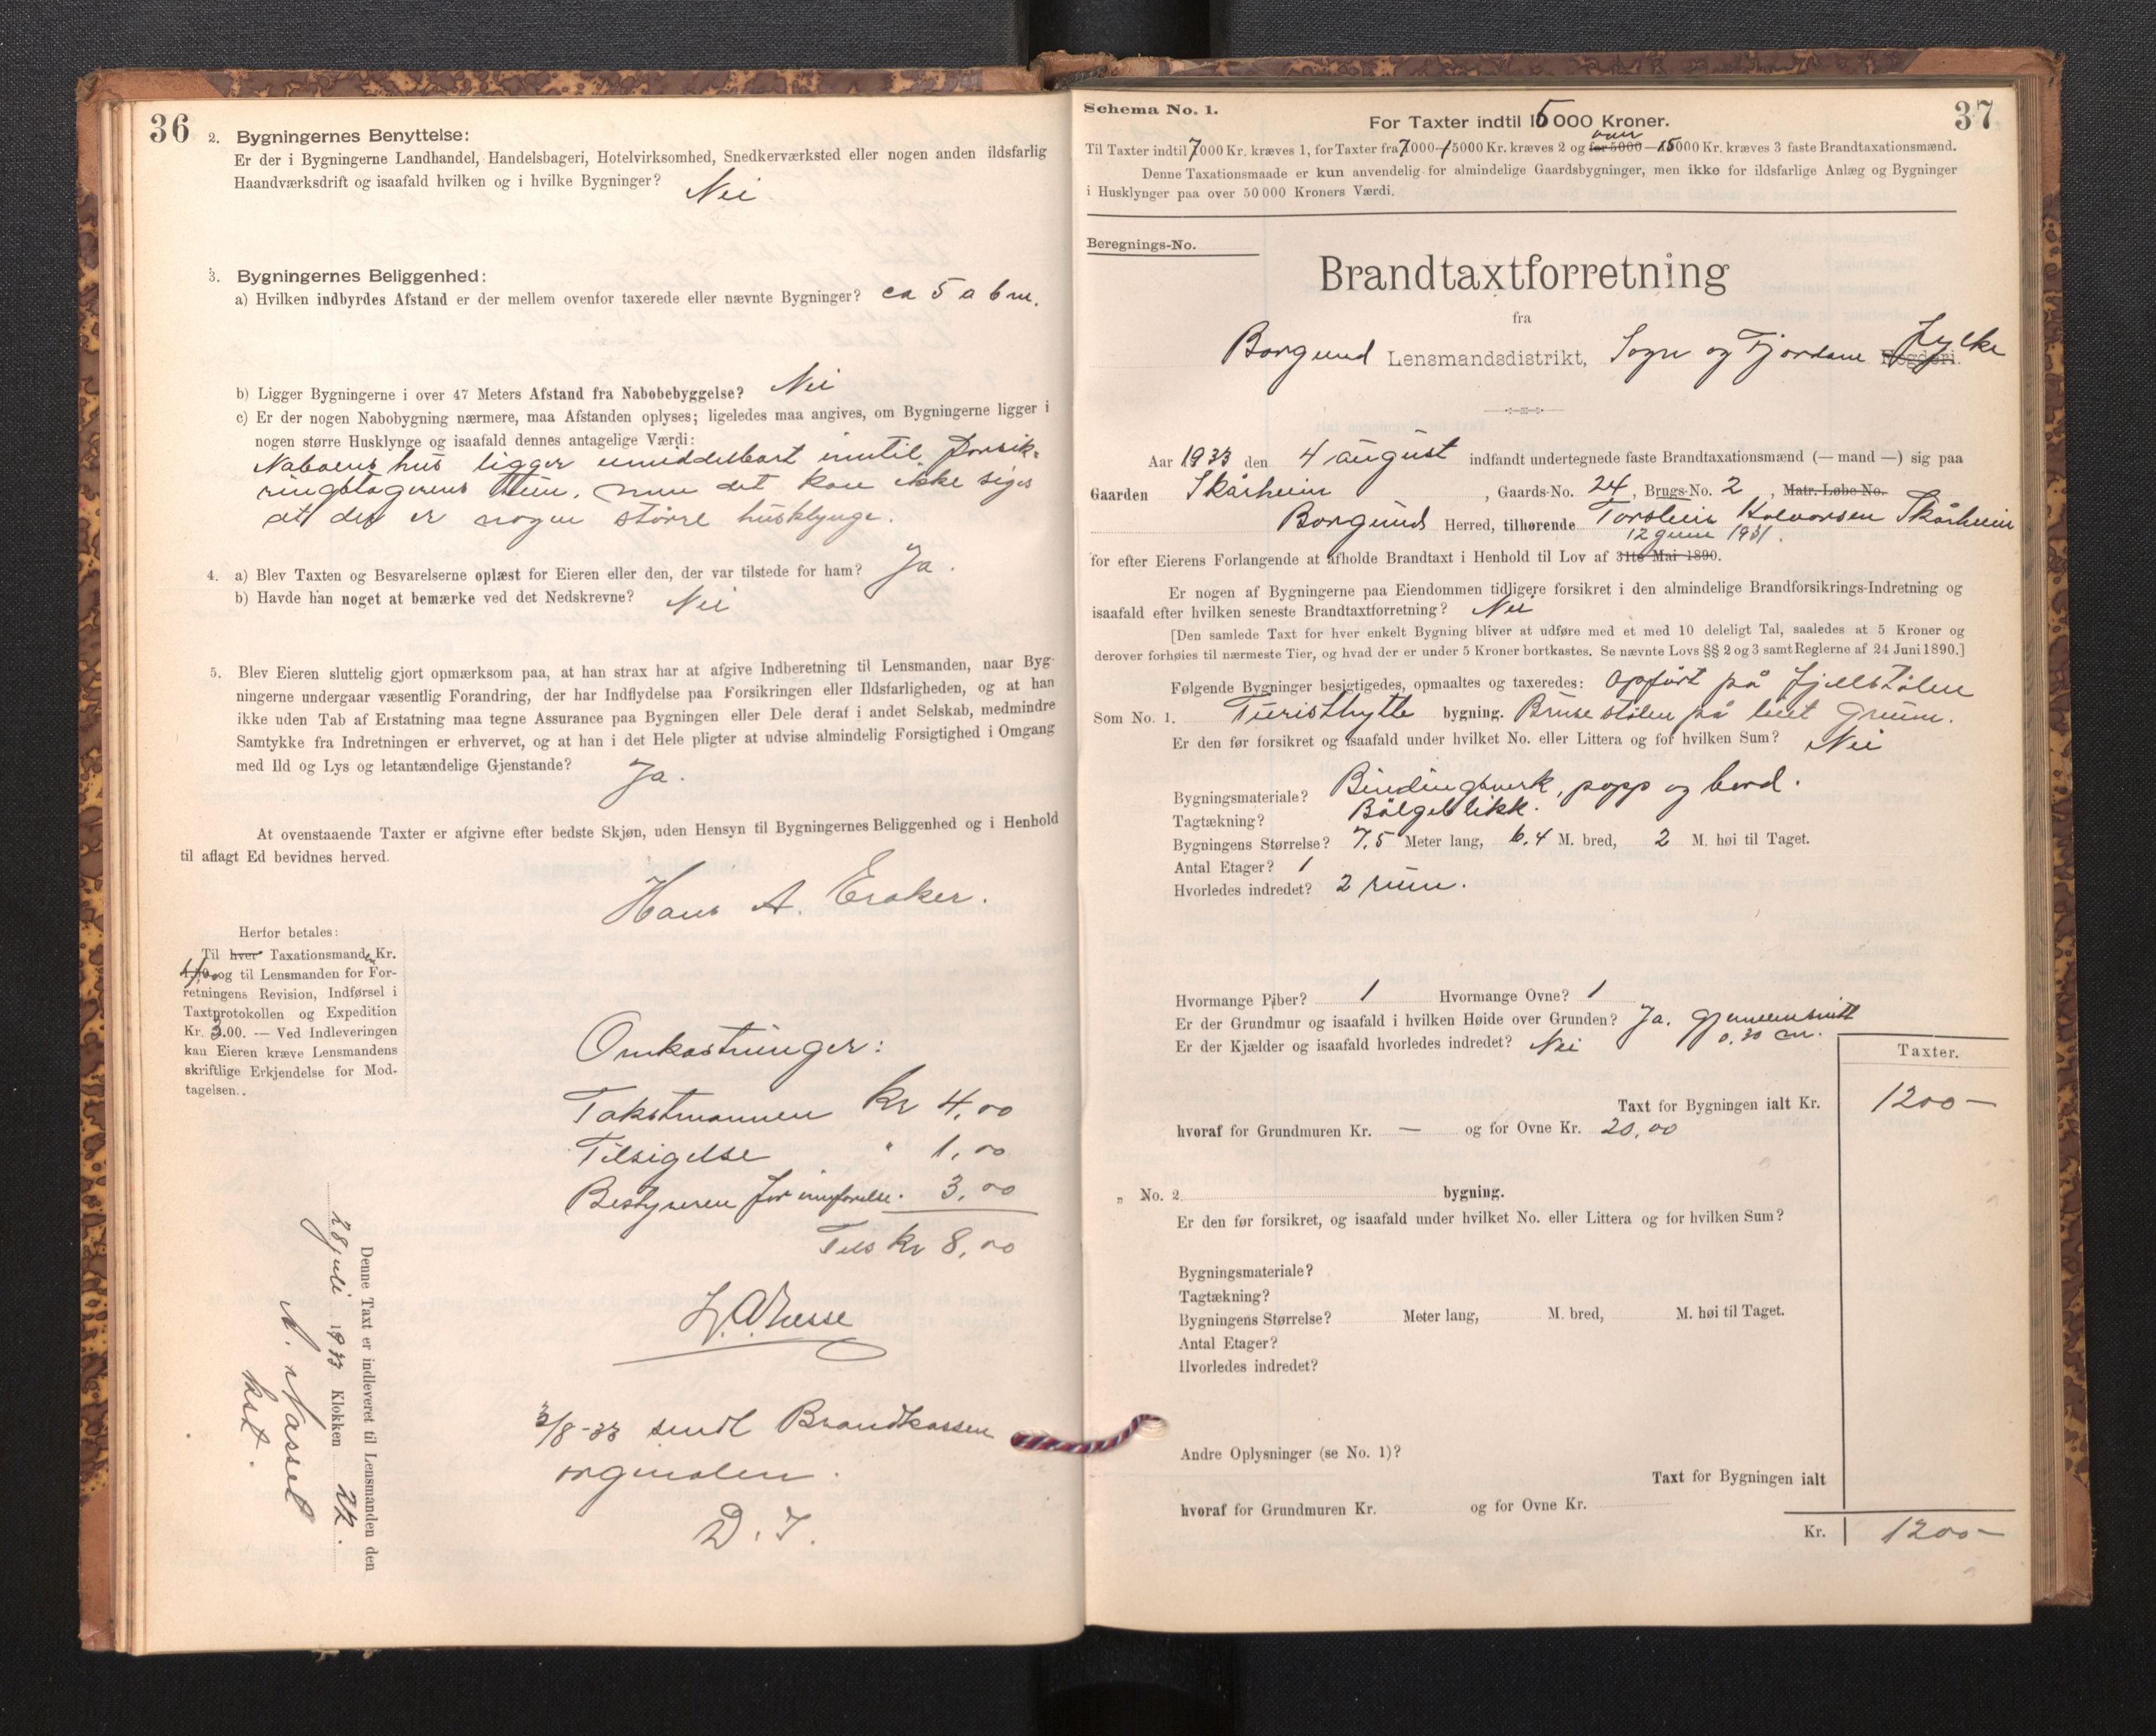 36
2. Bygningernes Benyttelse:
Er der i Bygningerne Landhandel, Handelsbageri, Hotelvirksomhed, Snedkerværksted eller nogen anden ildsfarlig
Haandværksdrift og isaafald hvilken og i hvilke Bygninger? Nei
3. Bygningernes Beliggenhed:
a) Hvilken indbyrdes Afstand er der mellem ovenfor taxerede eller nævnte Bygninger? ca 5 a 6 m.
b) Ligger Bygningerne i over 47 Meters Afstand fra Nabobebyggelse? Nei
c) Er der nogen Nabobygning nærmere, maa Afstanden oplyses; ligeledes maa angives, om Bygningerne ligger i
nogen større Husklynge og isaafald dennes antagelige Værdi:
Naboens hus ligger umiddelbart inntil forsik-
ringstagerens tun, men det kan ikke siges
at der er nogen større husklynge.
4. a) Blev Taxten og Besvarelserne oplæst for Eieren eller den, der var tilstede for ham? Ja.
b) Havde han noget at bemærke ved det Nedskrevne? Nei
5. Blev Eieren sluttelig gjort opmærksom paa, at han strax har at afgive Indberetning til Lensmanden, naar Byg-
ningerne undergaar væsentlig Forandring, der har Indflydelse paa Forsikringen eller Ildsfarligheden, og at han
ikke uden Tab af Erstatning maa tegne Assurance paa Bygningen eller Dele deraf i andet Selskab, medmindre
Samtykke fra Indretningen er erhvervet, og at han i det Hele pligter at udvise almindelig Forsigtighed i Omgang
med Ild og Lys og letantændelige Gjenstande? Ja.
At ovenstaaende Taxter er afgivne efter bedste Skjøn, uden Hensyn til Bygningernes Beliggenhed og i Henhold
til aflagt Ed bevidnes herved.
Hans A. Eraker.
Herfor betales:
Til hver Taxationsmanden Kr.
og til Lensmanden for For-
retningens Revision, Indførsel i
Taxtprotokollen og Expedition
Kr. 3.00. — Ved Indleveringen
kan Eieren kræve Lensmandens
skriftlige Erkjendelse for Mod-
tagelsen.
Omkostninger:
Takstmannen kr 4,00
Tilsigelse " 1,00
Bestyreren for innførelse. 3,00
Tils kr 8,00
3/8-33 sendt Brandkassen
orginalen.
D. J.
Denne Taxt er indleveret til Lensmanden den
28 juli 1933 Klokken 24.
kst.
Schema No. 1.
37
For Taxter indtil 15 000 Kroner.
Til Taxter indtil 7000 Kr. kræves 1, for Taxter fra 7000—15000 Kr. kræves 2 og over for 5000—15000 Kr. kræves 3 faste Brandtaxationsmænd.
Denne Taxationsmaade er kun anvendelig for almindelige Gaardsbygninger, men ikke for ildsfarlige Anlæg og Bygninger
i Husklynger paa over 50 000 Kroners Værdi.
Beregnings-No.
Brandtaxtforretning
fra
Borgund Lensmandsdistrikt, Sogn og Fjordane Fylke Fogderi.
Aar 1933 den 4 august indfandt undertegnede faste Brandtaxationsmænd (— mand —) sig paa
Gaarden Skårheim, Gaards-No. 24, Brugs-No. 2, Matr.-Løbe-No.
Borgunds Herred, tilhørende Torstein Halvorsen Skårheim
12 juni 1931.
for efter Eierens Forlangende at afholde Brandtaxt i Henhold til Lov af 31te Mai 1890.
Er nogen af Bygningerne paa Eiendommen tidligere forsikret i den almindelige Brandforsikrings-Indretning og
isaafald efter hvilken seneste Brandtaxtforretning? Nei
[Den samlede Taxt for hver enkelt Bygning bliver at udføre med et med 10 deleligt Tal, saaledes at 5 Kroner og
derover forhøies til nærmeste Tier, og hvad der er under 5 Kroner bortkastes. Se nævnte Lovs §§ 2 og 3 samt Reglerne af 24 Juni 1890.]
Følgende Bygninger besigtigedes, opmaaltes og taxeredes: Opført på fjellstølen
Som No. 1. Turisthytte bygning. Brusestølen på leiet grunn.
Er den før forsikret og isaafald under hvilket No. eller Littera og for hvilken Sum? Nei
Bygningsmateriale? Bindingsverk, papp og bord.
Tagtækning? Bølgeblikk.
Bygningens Størrelse? 7,5 Meter lang, 6,4 M. bred, 2 M. høi til Taget.
Antal Etager? 1
Hvorledes indredet? 2 rum.
Hvormange Piber? 1 Hvormange Ovne? 1
Er der Grundmur og isaafald i hvilken Høide over Grunden? Ja. gjennemsnitt
0,30 cm.
Er der Kjælder og isaafald hvorledes indredet? Nei
Taxter.
Taxt for Bygningen ialt Kr. 1200-
hvoraf for Grundmuren Kr. — og for Ovne Kr. 20,00
„ No. 2 bygning.
Er den før forsikret, og isaafald under hvilket No. eller Littera og for hvilken Sum?
Bygningsmateriale?
Tagtækning?
Bygningens Størrelse? Meter lang, M. bred, M. høi til Taget.
Antal Etager?
Hvorledes indredet?
Andre Oplysninger (se No. 1)?
Taxt for Bygningen ialt
hvoraf for Grundmuren Kr. og for Ovne Kr.
Kr. 1200-